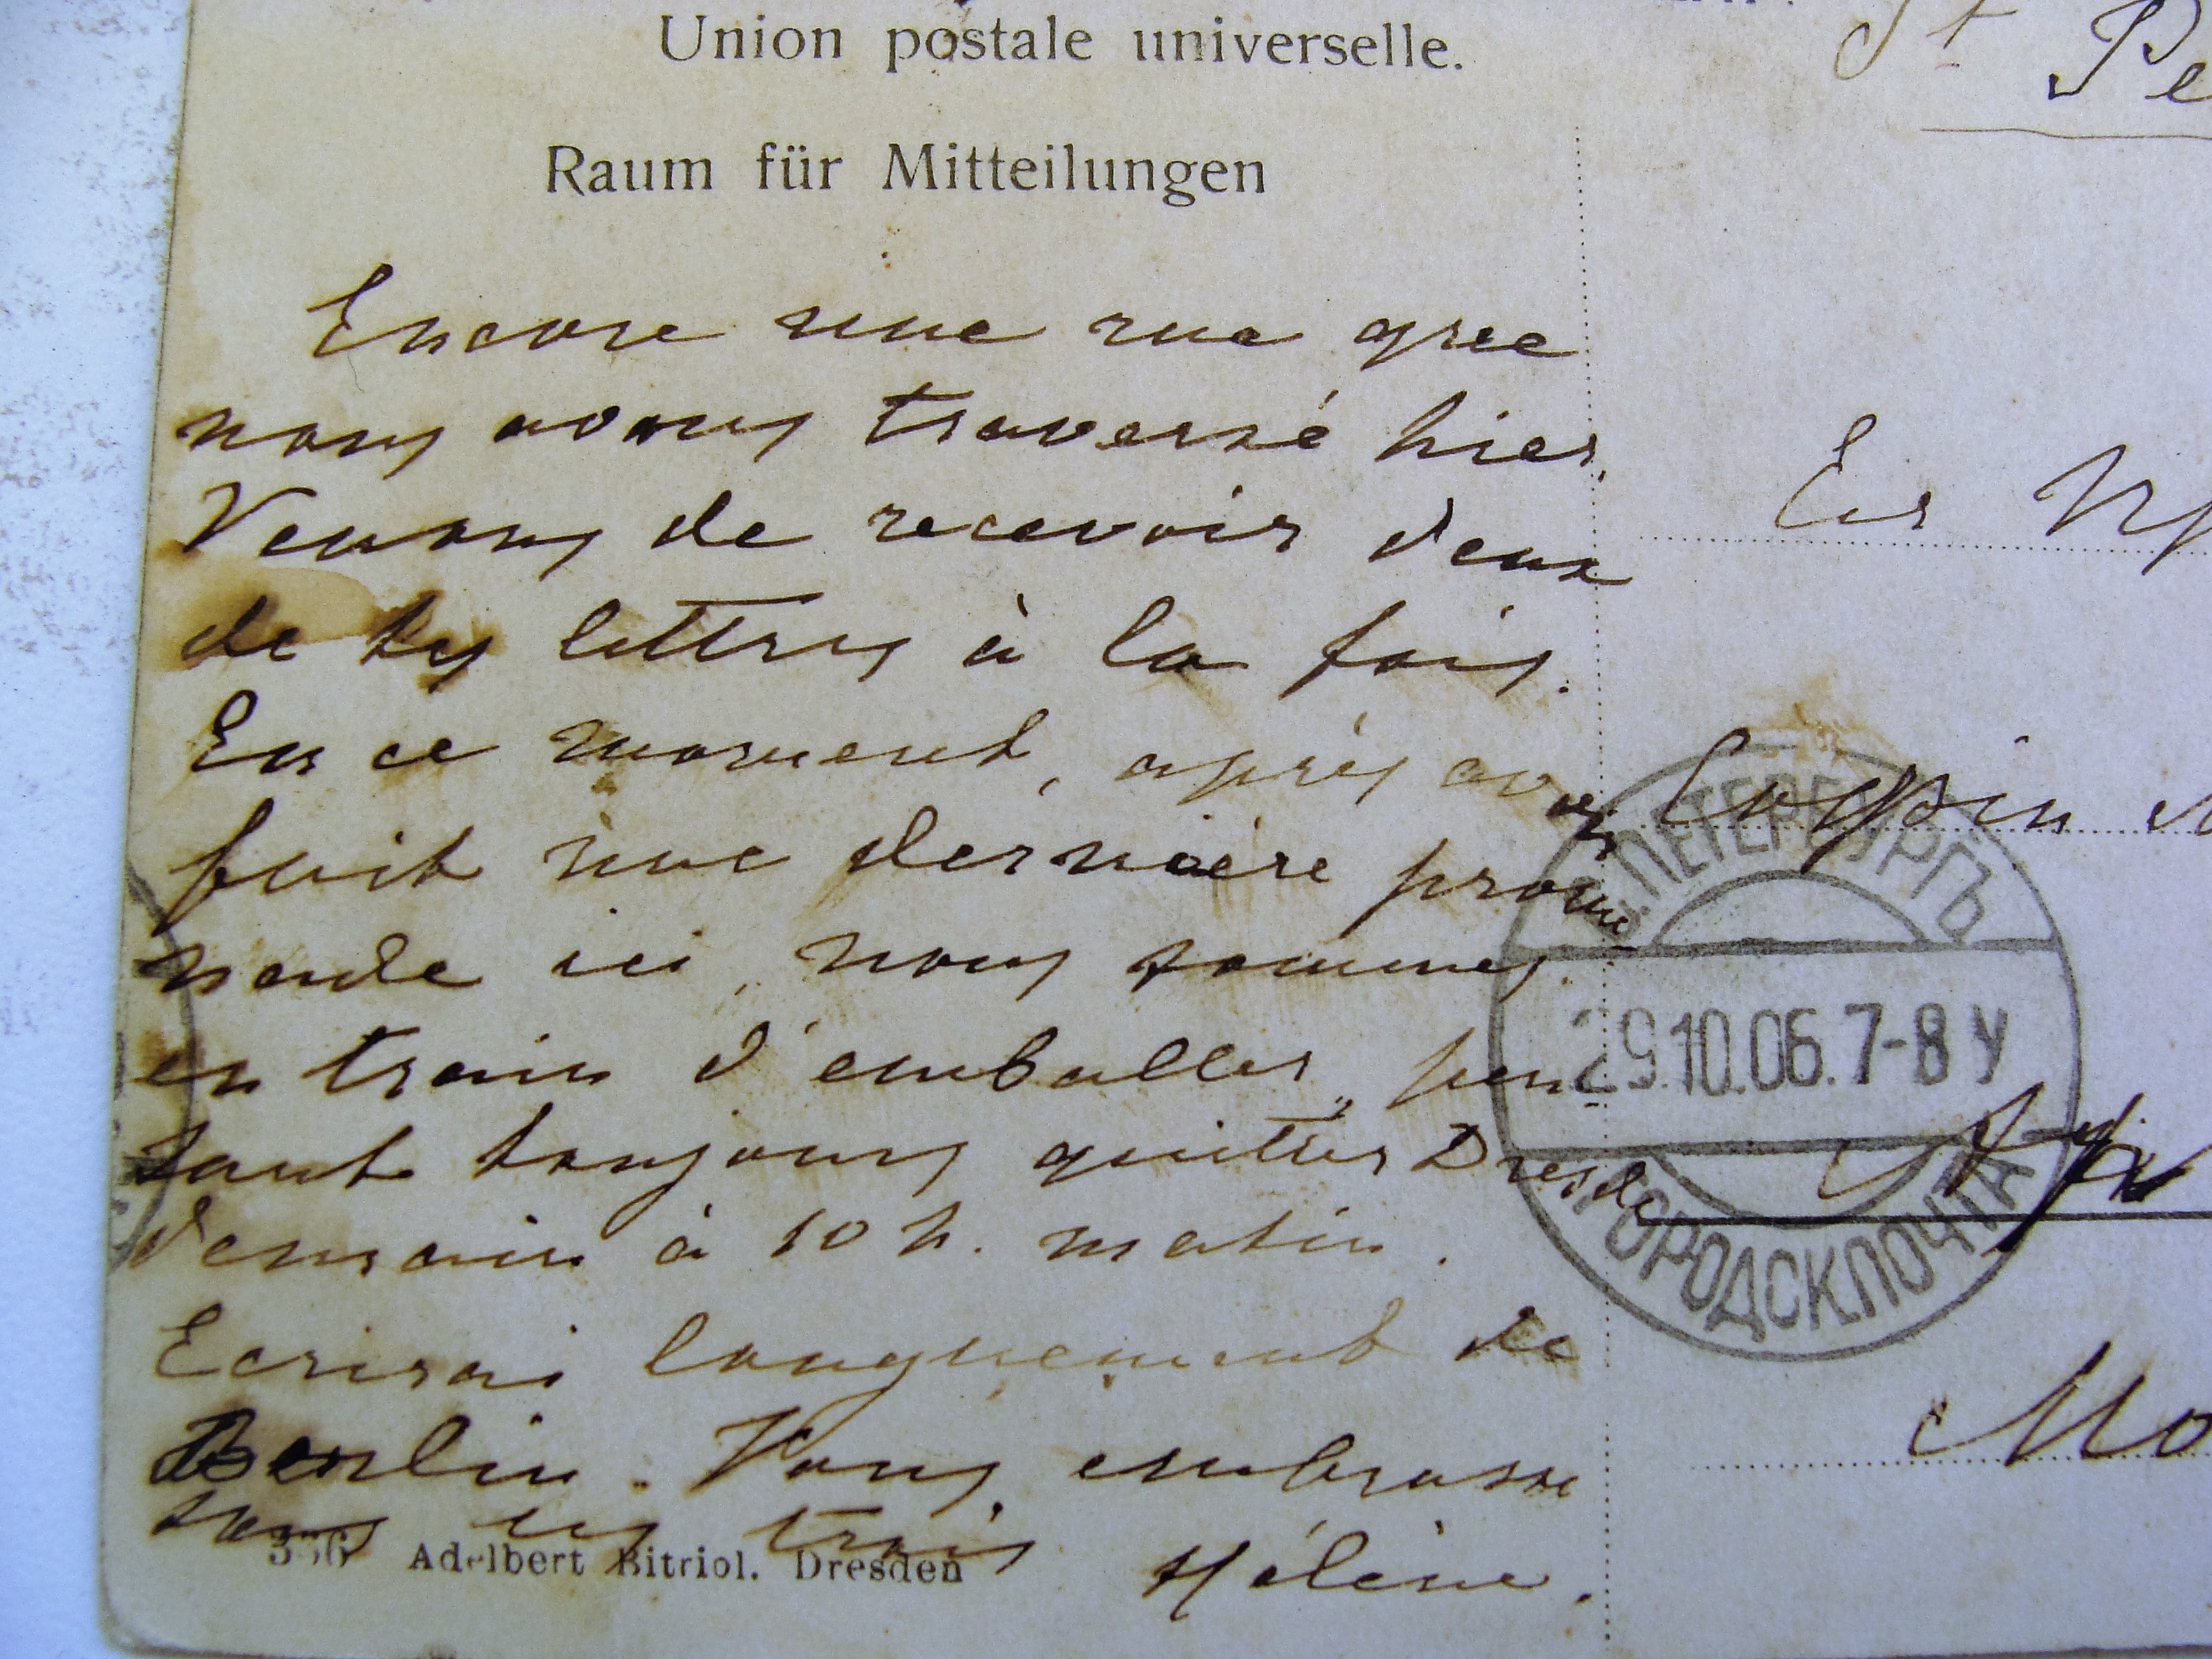 Union postale universelle.
Raum für Mitteilungen
St Pe
Encore une rue que
nous avons traversé hier.
Venons de recevoir deux
de tes lettres à la fois.
En ce moment, après avoir
fait une dernière prome
nade ici, nous sommes
en train d'emballer, pen
sant toujours quitter Dresde
demain à 10 h. matin.
Ecrirai longuement de
Berlin. Vous embrasse
tous les trois
Hélène.
336 Adelbert Bitriol. Dresden
ПЕТЕРБУРГЪ
29.10.06.7-8 У
ГОРОДСК.ПОЧТА
Mo